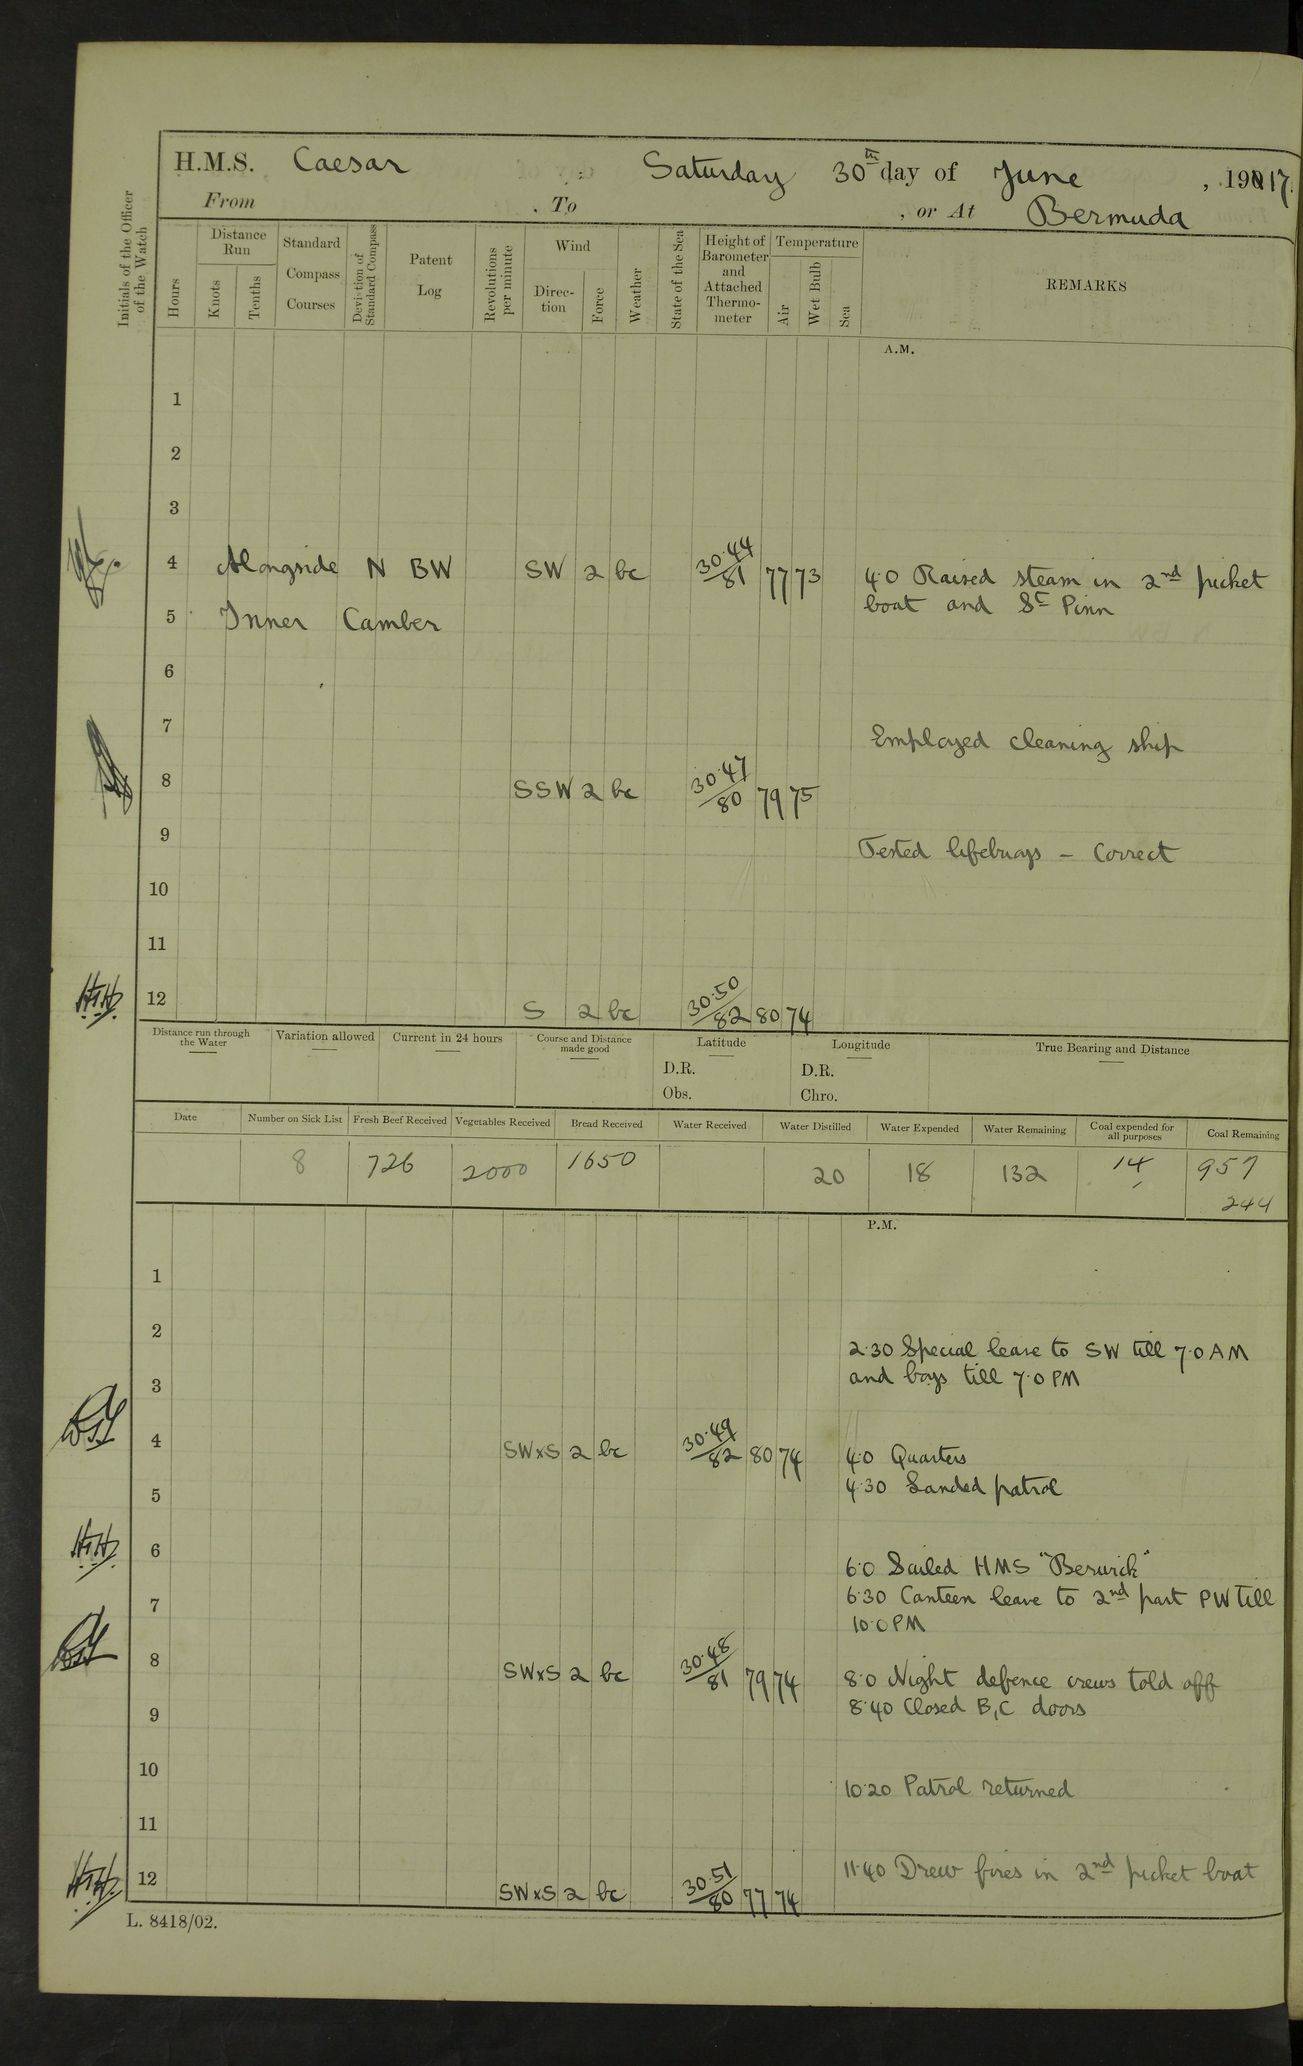 H.M.S. Caesar Saturday 30th day of June, 1917.
From , To , or At Bermuda
Initials of the Officer of the Watch
Hours
Distance Run
Knots
Tenths
Standard Compass Courses
Deviation of Standard Compass
Patent Log
Revolutions per minute
Wind
Direction
Force
Weather
State of the Sea
Height of Barometer and Attached Thermometer
Temperature
Air
Wet Bulb
Sea
REMARKS
A.M.
1
2
3
4 Alongside N BW SW 2 bc 30.44/81 77 73 4.0 Raised steam in 2nd picket
boat and St Pinn
5 Inner Camber
6
7
Employed cleaning ship
8 SSW 2 bc 30.47/80 79 75
9
Tested lifebuoys - Correct
10
11
HH 12 S 2 bc 30.50/82 80 74
Distance run through the Water
Variation allowed
Current in 24 hours
Course and Distance made good
Latitude
D.R.
Obs.
Longitude
D.R.
Chro.
True Bearing and Distance
Date Number on Sick List Fresh Beef Received Vegetables Received Bread Received Water Received Water Distilled Water Expended Water Remaining Coal expended for all purposes Coal Remaining
8 726 2000 1650 20 18 132 14 957
244
P.M.
1
2
2.30 Special leave to SW till 7.0 AM
and boys till 7.0 PM
3
4 SWxS 2 bc 30.49/82 80 74 4.0 Quarters
4.30 Landed patrol
5
HH 6
6.0 Sailed HMS "Berwick"
6.30 Canteen leave to 2nd part PW till
7
10.0 PM
8 SWxS 2 bc 30.48/81 79 74 8.0 Night defence crews told off
8.40 Closed B,C doors
9
10
10.20 Patrol returned
11
11.40 Drew fires in 2nd picket boat
HH 12 SWxS 2 bc 30.51/80 77 74
L. 8418/02.